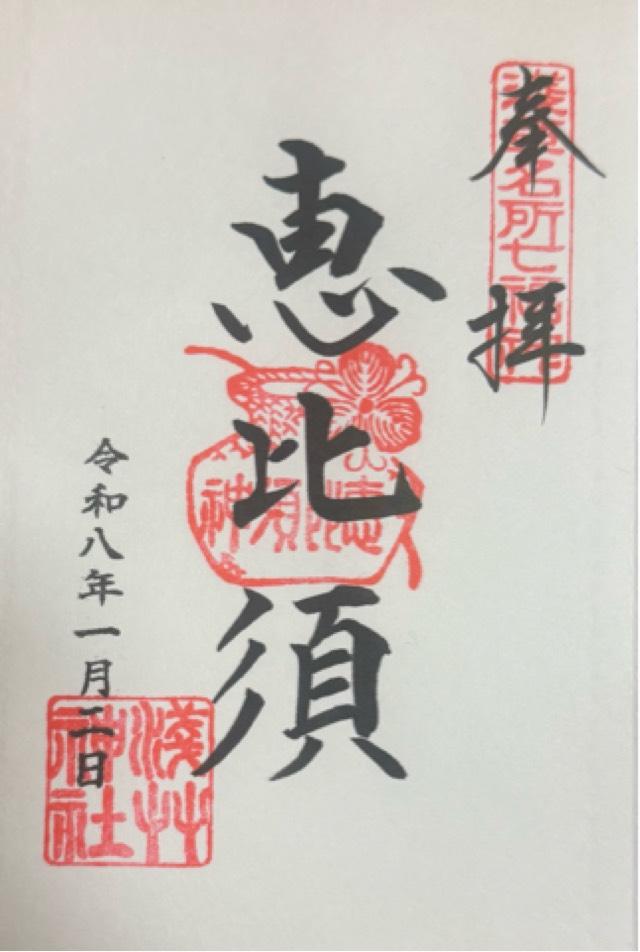 奉拝
浅草名所七福神
恵比須
恵比須神
令和八年一月二日
淺草神社